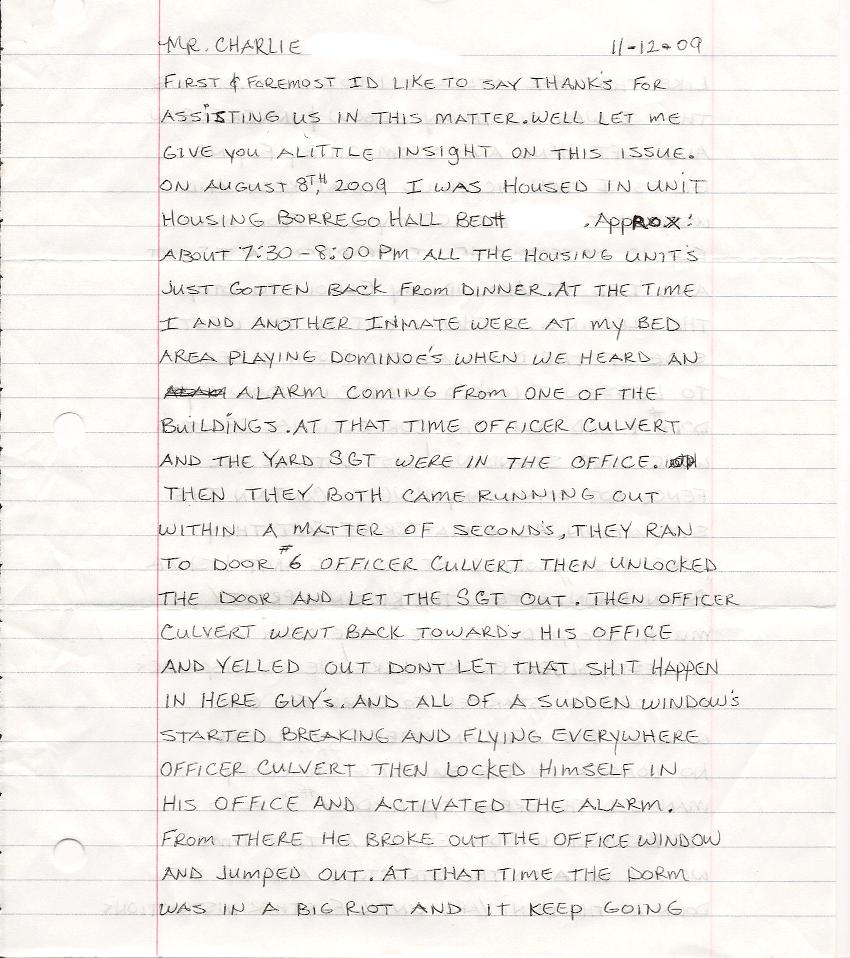 MR. CHARLIE 11-12-09
FIRST & FOREMOST ID LIKE TO SAY THANK'S FOR
ASSISTING US IN THIS MATTER. WELL LET ME
GIVE YOU ALITTLE INSIGHT ON THIS ISSUE.
ON AUGUST 8TH, 2009 I WAS HOUSED IN UNIT
HOUSING BORREGO HALL BED# . APPROX:
ABOUT 7:30-8:00 PM ALL THE HOUSING UNIT'S
JUST GOTTEN BACK FROM DINNER. AT THE TIME
I AND ANOTHER INMATE WERE AT MY BED
AREA PLAYING DOMINOE'S WHEN WE HEARD AN
ALARM COMING FROM ONE OF THE
BUILDINGS. AT THAT TIME OFFICER CULVERT
AND THE YARD SGT WERE IN THE OFFICE.
THEN THEY BOTH CAME RUNNING OUT
WITHIN A MATTER OF SECOND'S, THEY RAN
TO DOOR #6 OFFICER CULVERT THEN UNLOCKED
THE DOOR AND LET THE SGT OUT. THEN OFFICER
CULVERT WENT BACK TOWARD'S HIS OFFICE
AND YELLED OUT DONT LET THAT SHIT HAPPEN
IN HERE GUY'S. AND ALL OF A SUDDEN WINDOW'S
STARTED BREAKING AND FLYING EVERYWHERE
OFFICER CULVERT THEN LOCKED HIMSELF IN
HIS OFFICE AND ACTIVATED THE ALARM.
FROM THERE HE BROKE OUT THE OFFICE WINDOW
AND JUMPED OUT. AT THAT TIME THE DORM
WAS IN A BIG RIOT AND IT KEEP GOING